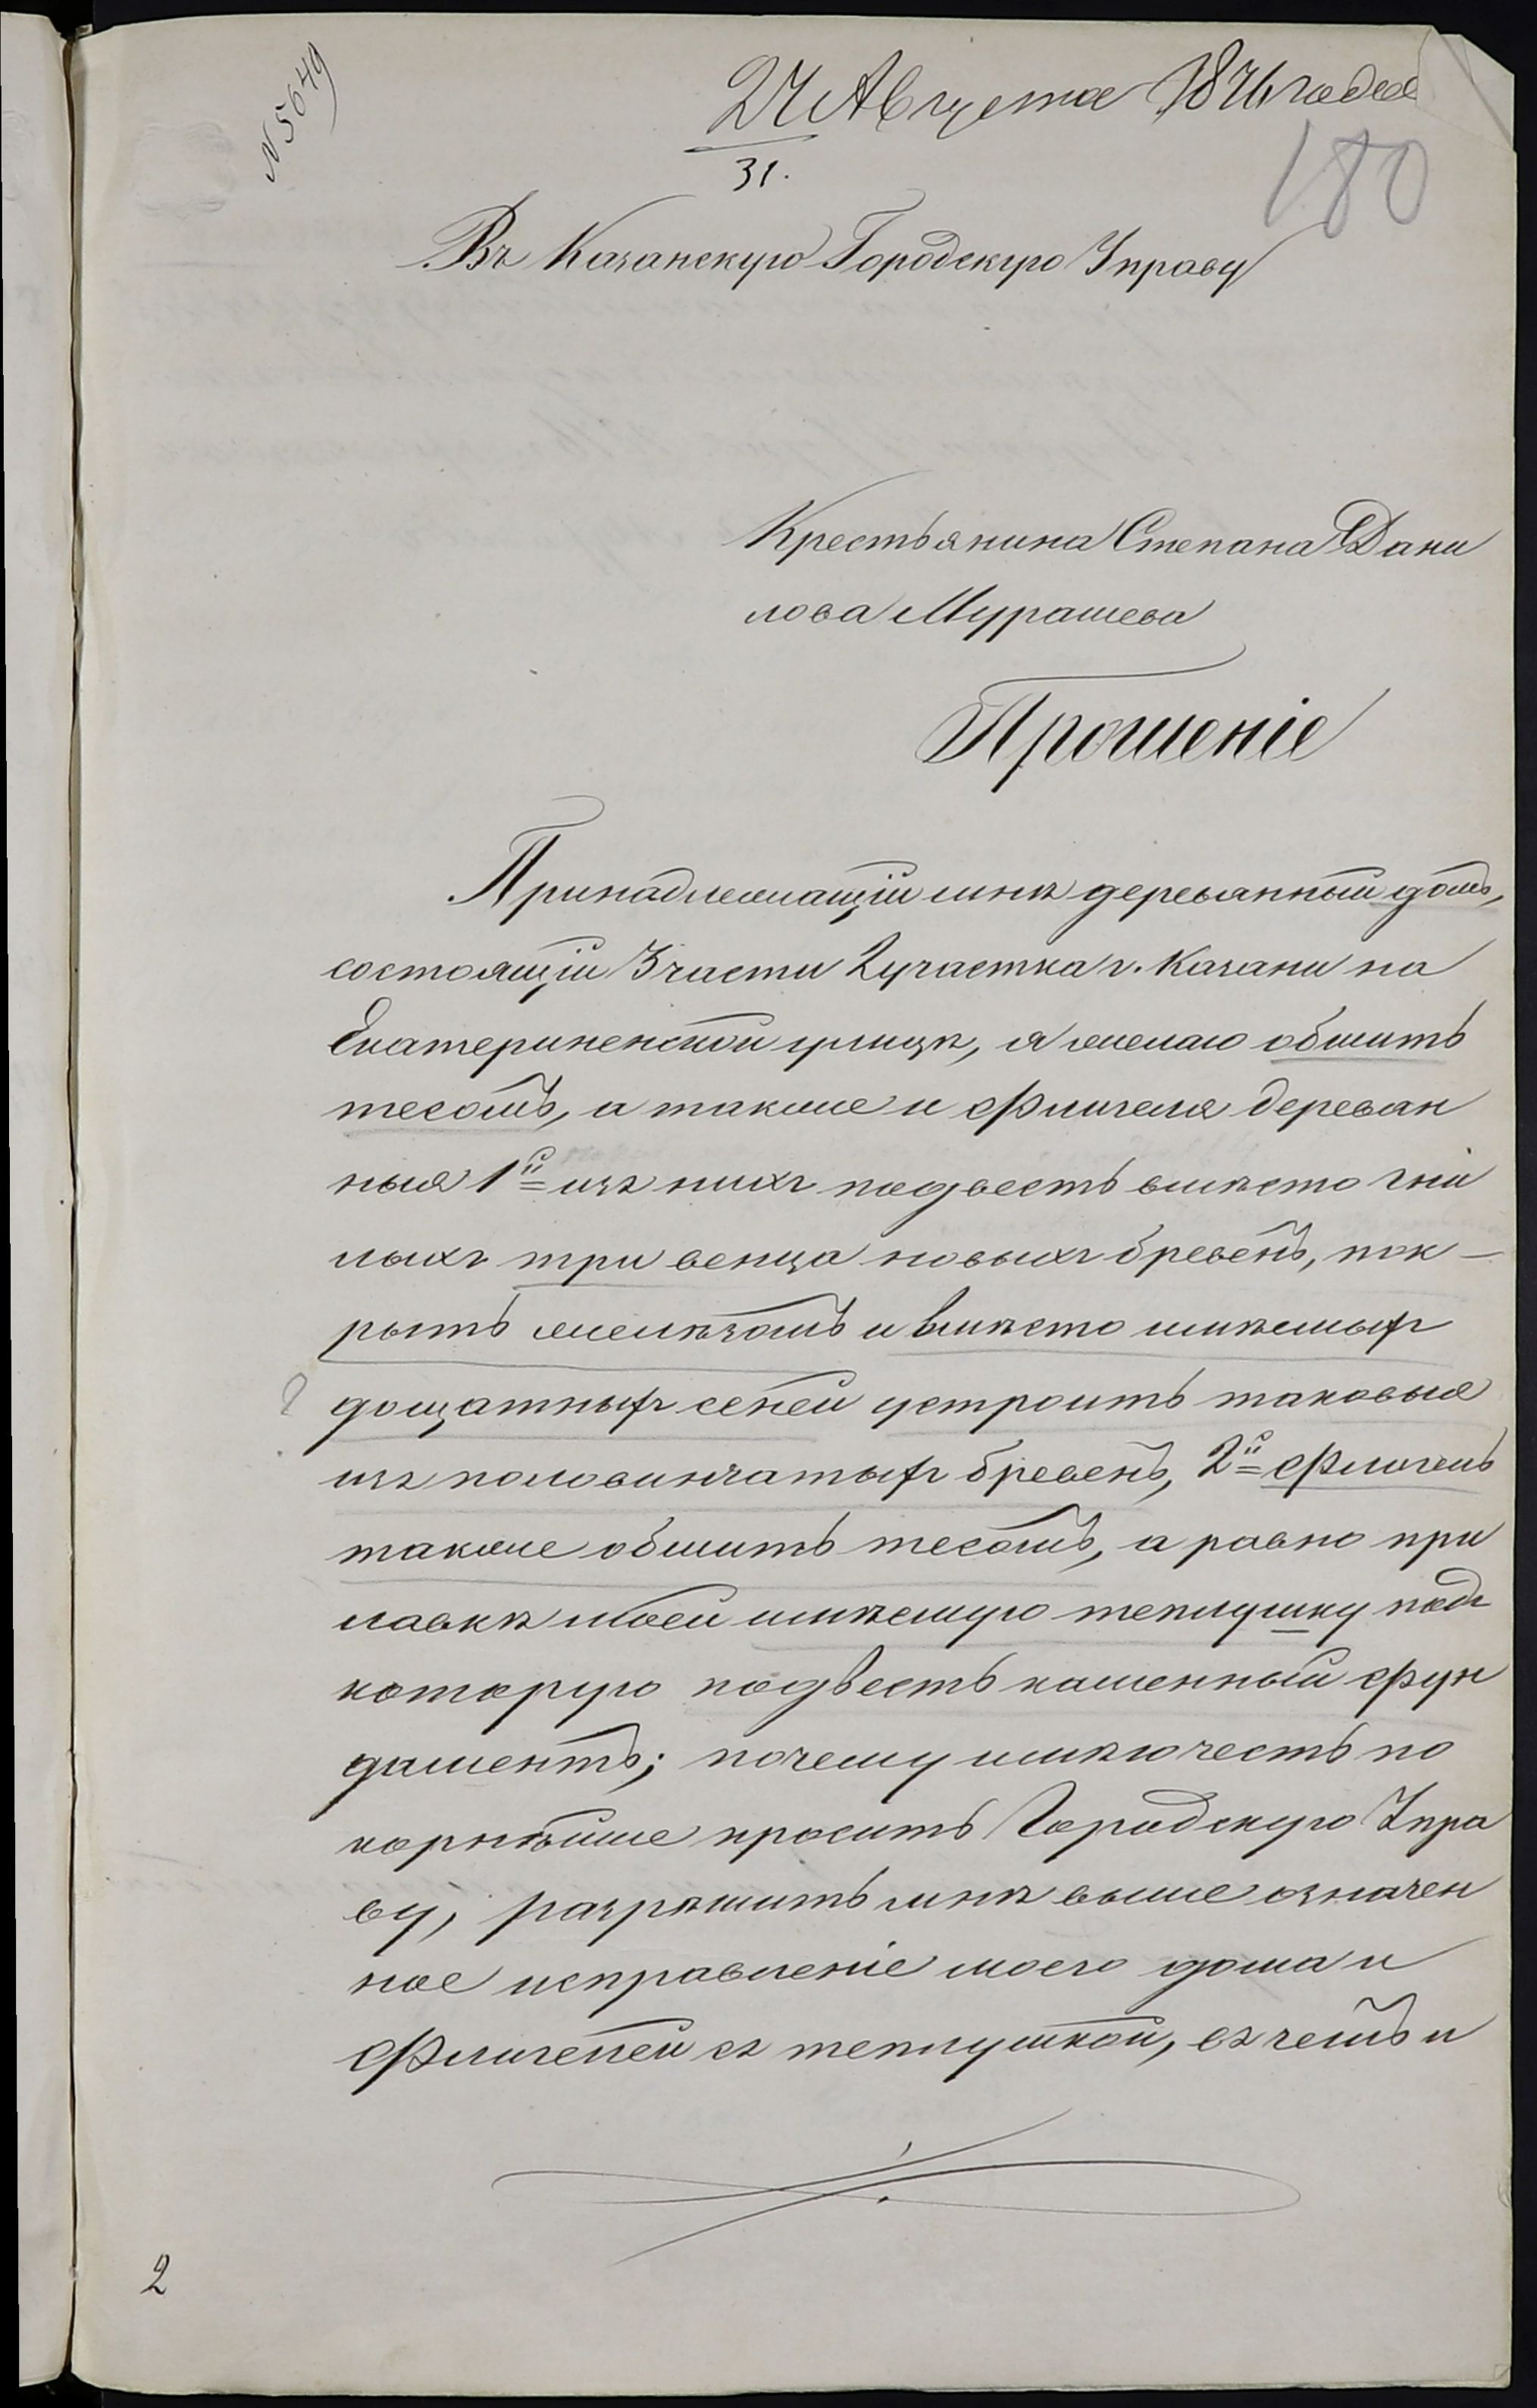 N 5649
27 Августа 1876 года
31.
180
Въ Казанскую Городскую Управу
Крестьянина Степана Дани
лова Мурашева
Прошеніе
Принадлежащій мнѣ деревянный домъ,
состоящій 3 части 2 участка г. Казани на
Екатериненской улицѣ, я желаю обшить
тесомъ, а также и флигеля деревян
ныя 1й изъ нихъ подвесть вмѣсто гни
лыхъ три венца новыхъ бревенъ, пок-
рыть желѣзомъ и вмѣсто имѣемыхъ
дощатныхъ сеней устроить таковыя
изъ половинчатыхъ бревенъ, 2й флигель
также обшить тесомъ, а равно при
лавкѣ моей имѣемую теплушку подъ
которую подвесть каменный фун
даментъ; почему имѣю честь по
корнѣйше просить Городскую Упра
ву, разрѣшить мнѣ выше означен
ное исправленіе моего дома и
флигелей съ теплушкой, въ чемъ и
2